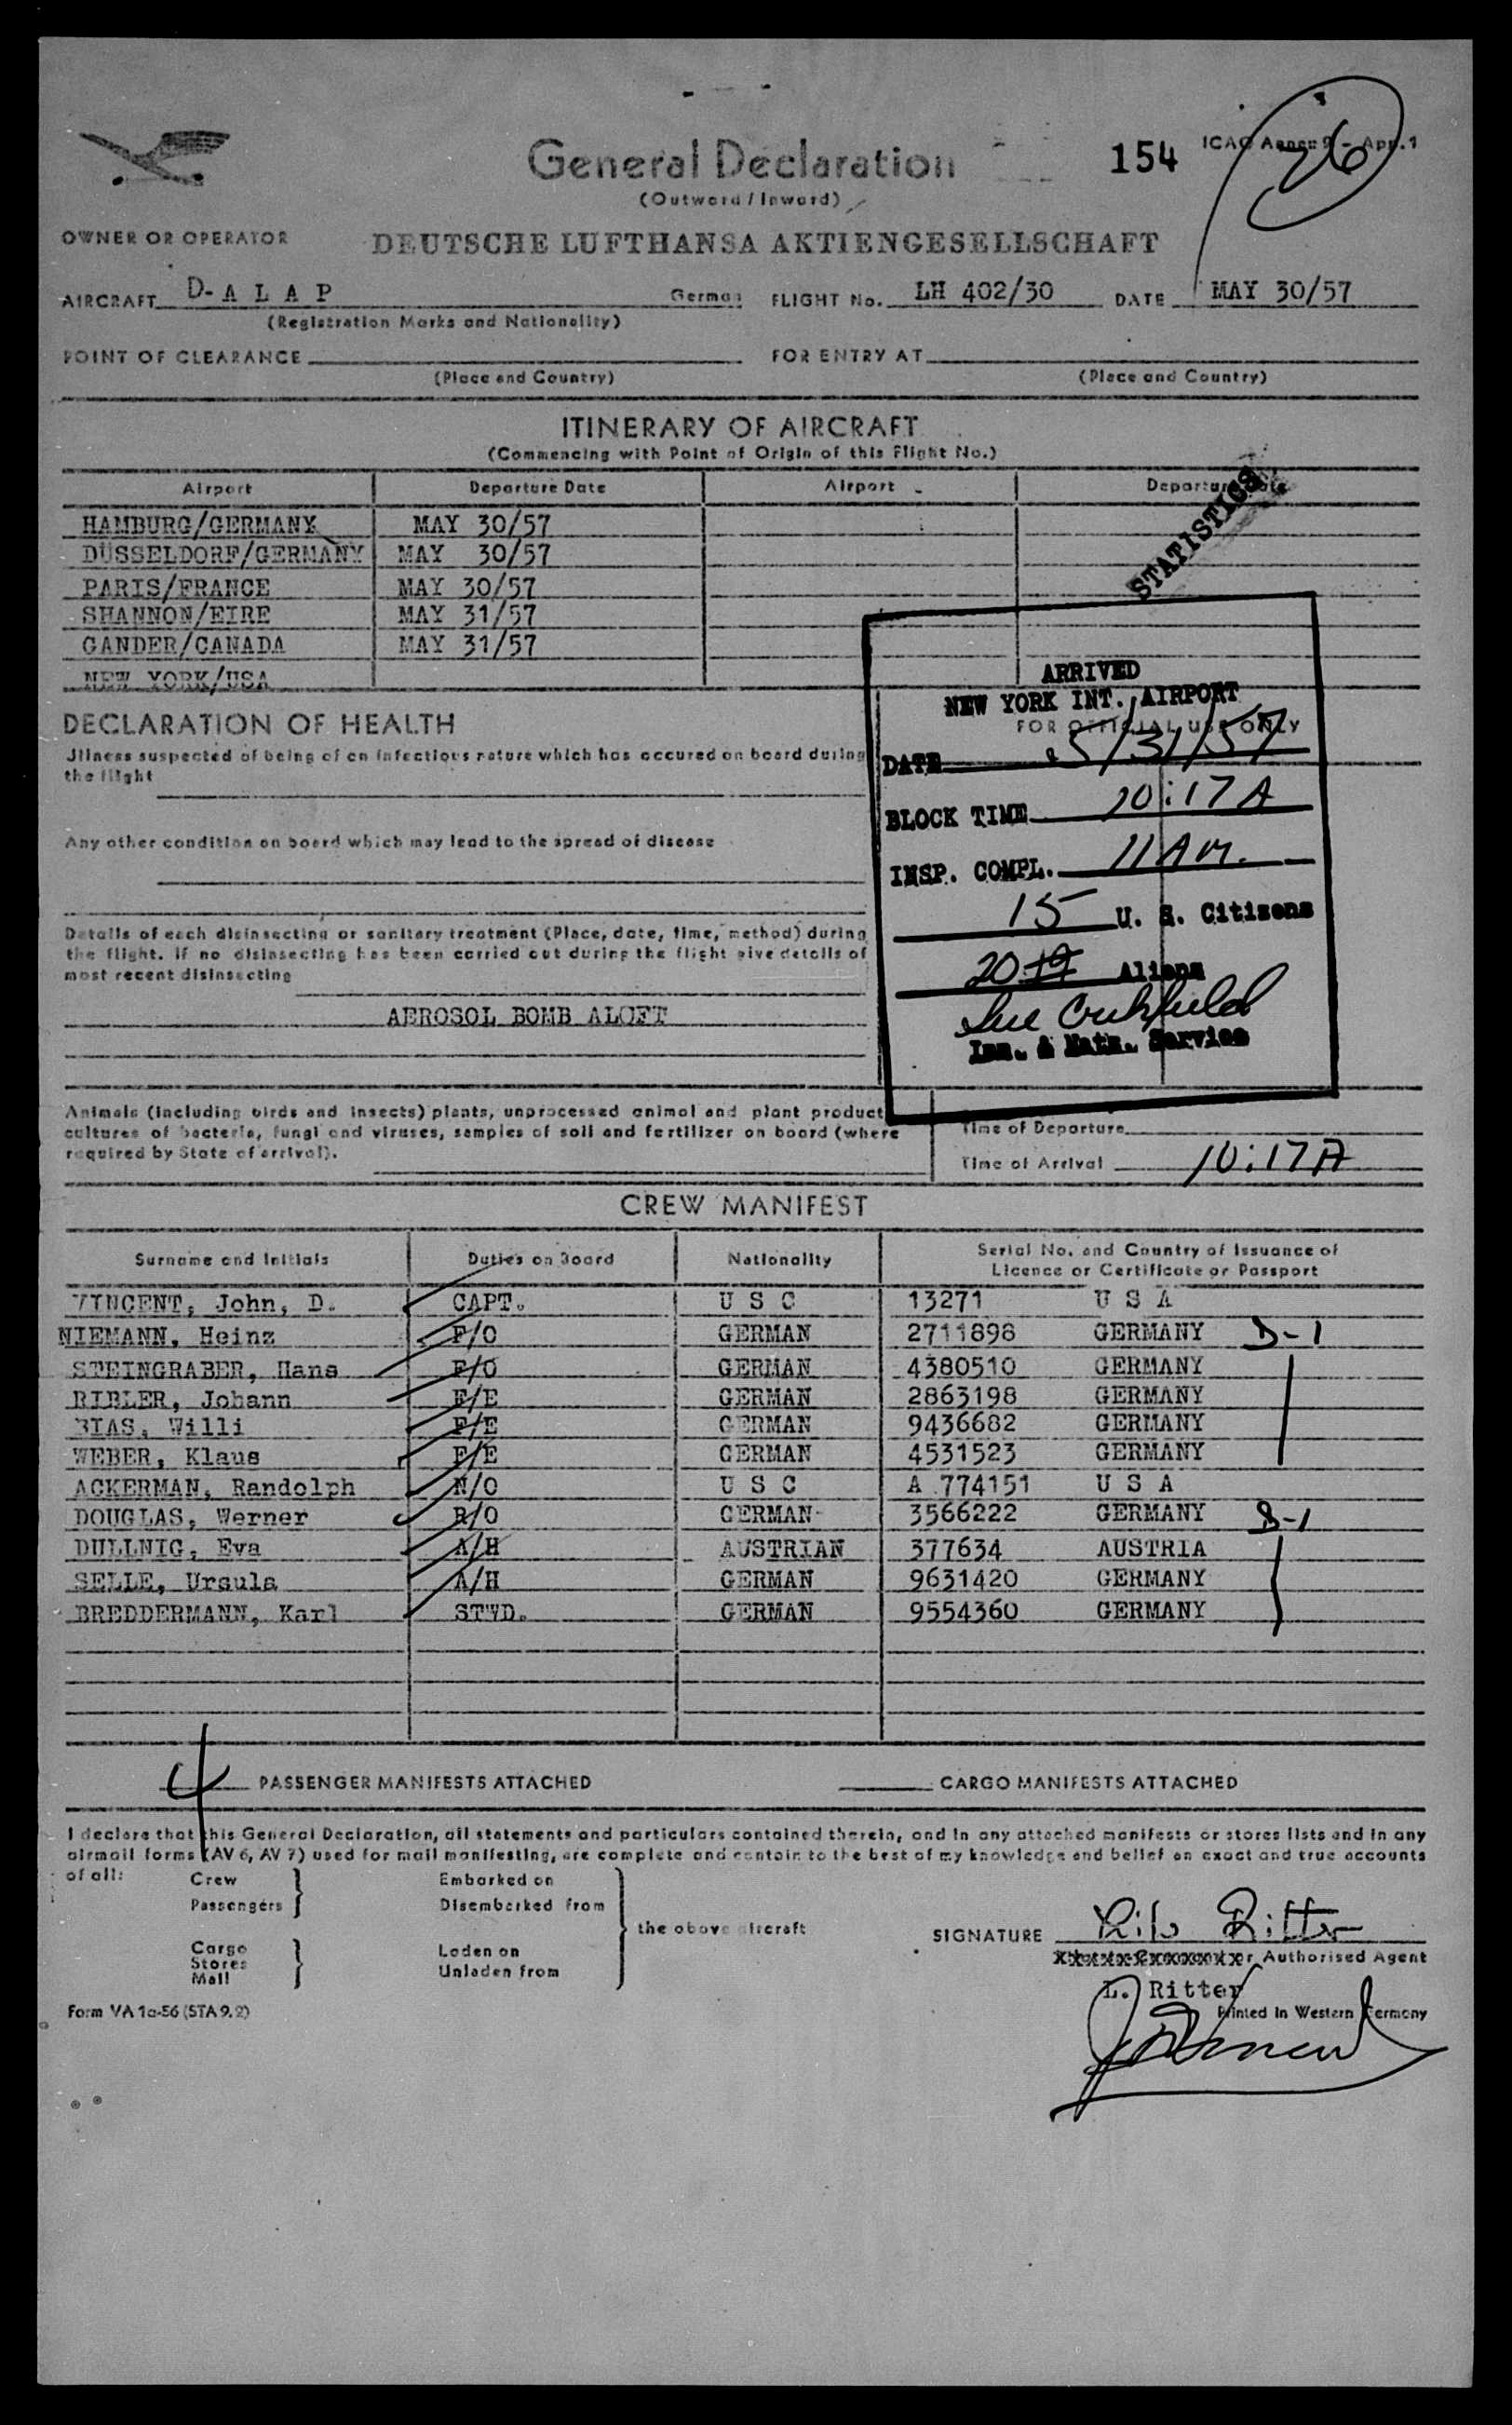 General Declaration
154
ICAO Annex 9 - App. 1
26
(Outward / Inward)
OWNER OR OPERATOR DEUTSCHE LUFTHANSA AKTIENGESELLSCHAFT
AIRCRAFT D-A L A P German FLIGHT No. LH 402/30 DATE MAY 30/57
(Registration Marks and Nationality)
POINT OF CLEARANCE FOR ENTRY AT
(Place and Country) (Place and Country)
ITINERARY OF AIRCRAFT
(Commencing with Point of Origin of this Flight No.)
Airport Departure Date Airport Departure Date
STATISTICS
HAMBURG/GERMANY MAY 30/57
DÜSSELDORF/GERMANY MAY 30/57
PARIS/FRANCE MAY 30/57
SHANNON/EIRE MAY 31/57
GANDER/CANADA MAY 31/57
NEW YORK/USA
ARRIVED
NEW YORK INT. AIRPORT
FOR OFFICIAL USE ONLY
DATE 5/31/57
BLOCK TIME 10:17 A
INSP. COMPL. 11 AM.
15 U. S. Citizens
20 19 Aliens
Imm. & Natz. Service
DECLARATION OF HEALTH
Illness suspected of being of an infectious nature which has occured on board during
the flight
Any other condition on board which may lead to the spread of disease
Details of each disinsecting or sanitary treatment (Place, date, time, method) during
the flight. If no disinsecting has been carried out during the flight give details of
most recent disinsecting
AEROSOL BOMB ALOFT
Animals (including birds and insects) plants, unprocessed animal and plant product
cultures of bacteria, fungi and viruses, samples of soil and fertilizer on board (where
required by State of arrival).
Time of Departure
Time of Arrival 10:17 A
CREW MANIFEST
Surname and Initials Duties on Board Nationality Serial No. and Country of Issuance of
Licence or Certificate or Passport
VINCENT, John, D. CAPT. U S C 13271 U S A
NIEMANN, Heinz F/O GERMAN 2711898 GERMANY D-1
STEINGRABER, Hans F/O GERMAN 4380510 GERMANY
RIBLER, Johann F/E GERMAN 2863198 GERMANY
BIAS, Willi F/E GERMAN 9436682 GERMANY
WEBER, Klaus F/E GERMAN 4531523 GERMANY
ACKERMAN, Randolph N/O U S C A 774151 U S A
DOUGLAS, Werner R/O GERMAN 3566222 GERMANY D-1
DULLNIG, Eva A/H AUSTRIAN 377634 AUSTRIA
SELLE, Ursula A/H GERMAN 9631420 GERMANY
BREDDERMANN, Karl STWD. GERMAN 9554360 GERMANY
4 PASSENGER MANIFESTS ATTACHED CARGO MANIFESTS ATTACHED
I declare that this General Declaration, all statements and particulars contained therein, and in any attached manifests or stores lists and in any
airmail forms (AV 6, AV 7) used for mail manifesting, are complete and contain to the best of my knowledge and belief an exact and true accounts
of all:
Crew Embarked on
Passengers Disembarked from
the above aircraft
Cargo Laden on
Stores
Mail Unladen from
SIGNATURE Lilo Ritter
or Authorised Agent
L. Ritter
Form VA 1a-56 (STA 9.2)
Printed in Western Germany